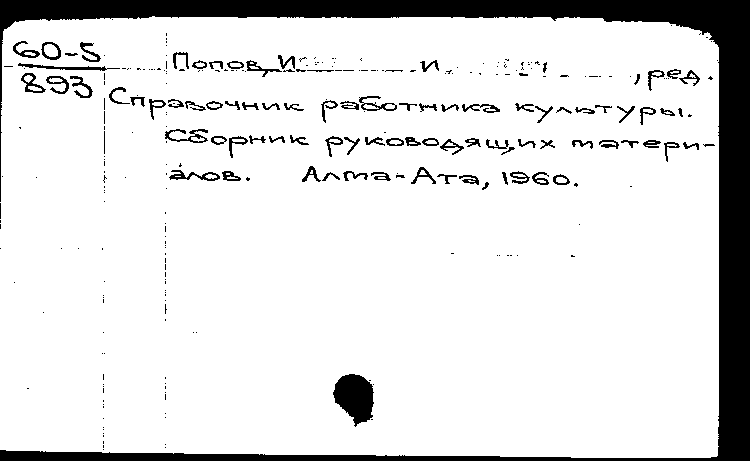 60-5
893
Попов, И И , ред.
Справочник работника культуры.
Сборник руководящих матери-
алов. Алма-Ата, 1960.